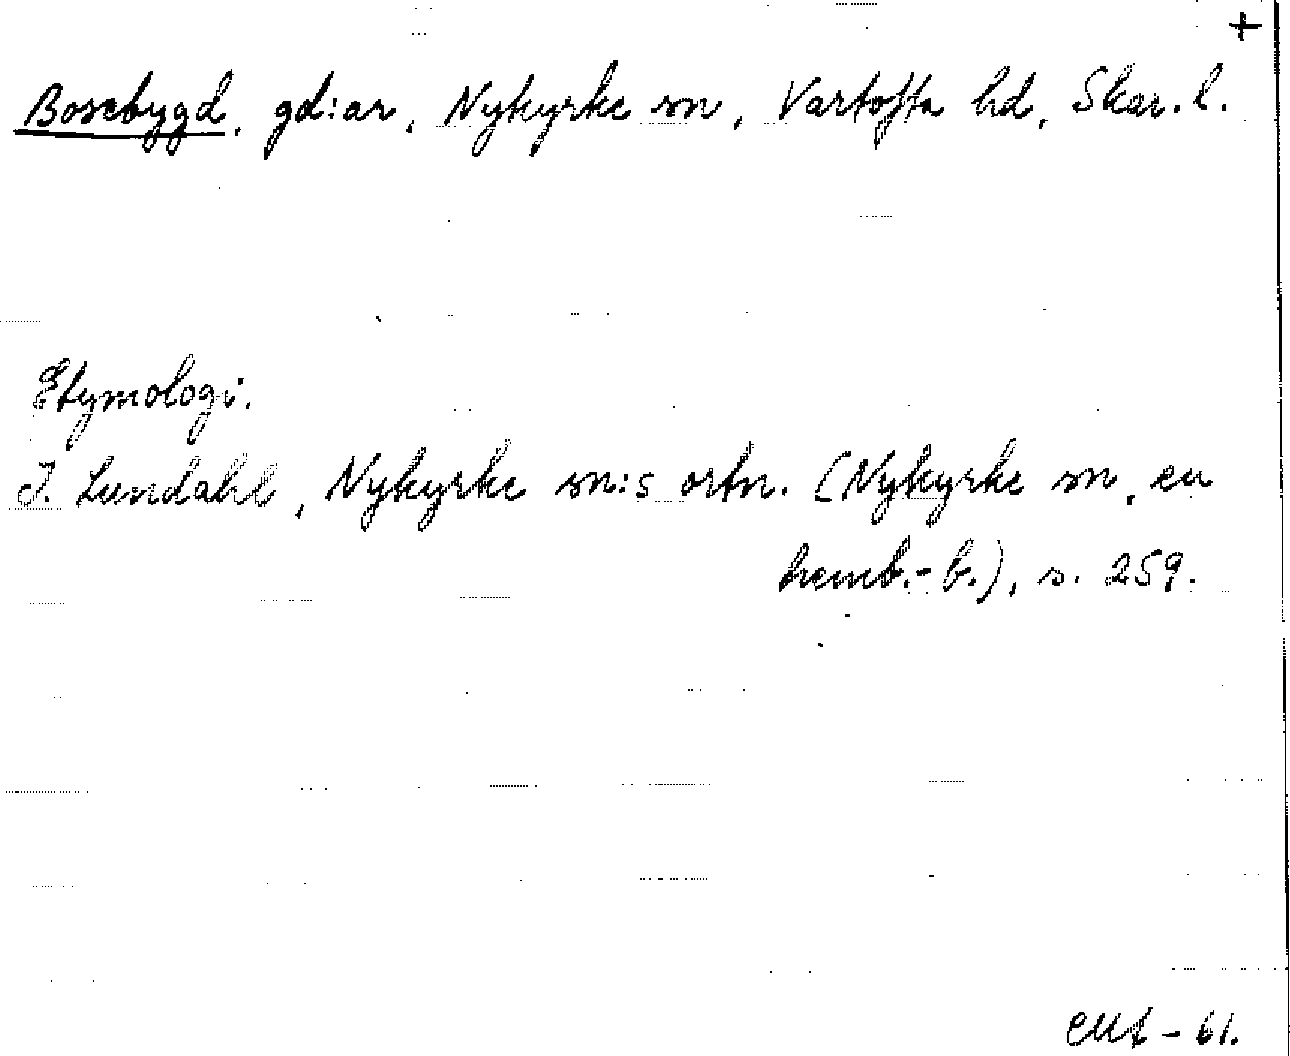 +
Bosebygd, gd:ar, Nykyrke sn, Vartofta hd, Skar. l.
Etymologi.
J. Lundahl, Nykyrke sn:s ortn. (Nykyrke sn, en
hemb.-b.), s. 259.
- 61.